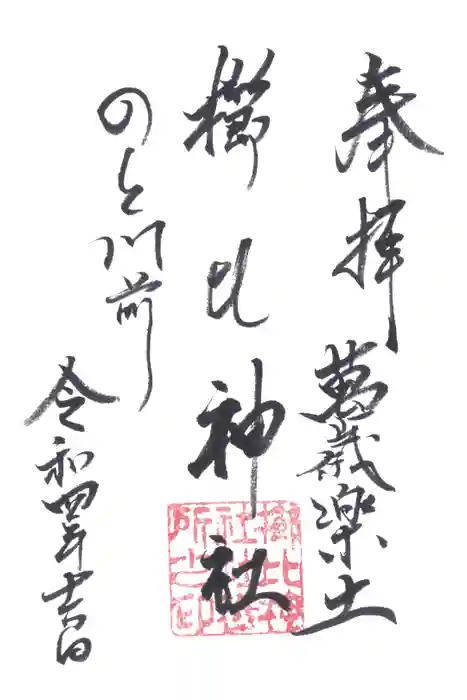 奉拝
萬歳楽土
櫛比神社
のと門前
令和四年 吉日
櫛比神
社社務
所之印